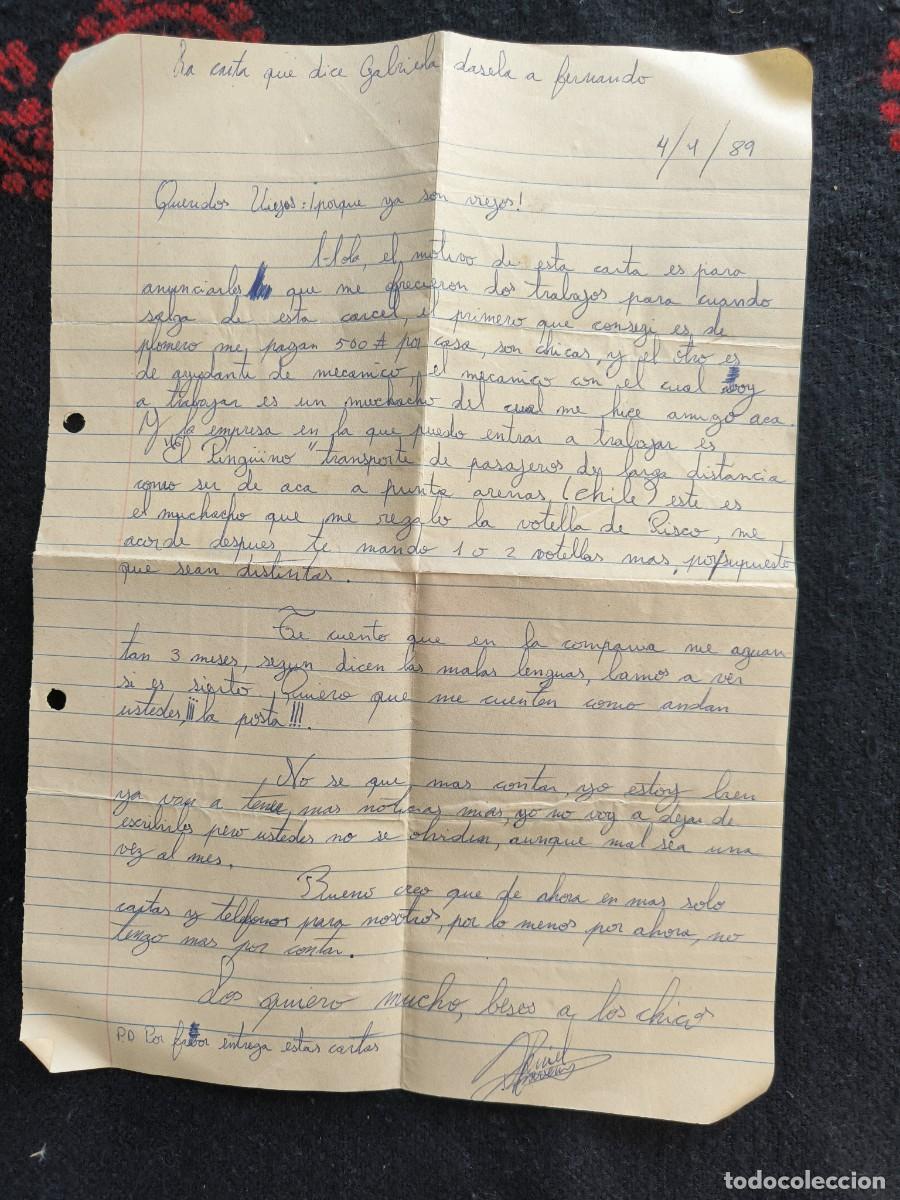 La carta que dice Gabriela dasela a fernando
4/1/89
Queridos Viejos: ¡porque ya son viejos!
Hola, el motivo de esta carta es para
anunciarles que me ofrecieron dos trabajos para cuando
salga de esta carcel, el primero que consegi es de
plomero me pagan 500 A por casa, son chicas, y el otro es
de ayudante de mecanico, el mecanico con el cual voy
a trabajar es un muchacho del cual me hice amigo aca.
Y la empresa en la que puedo entrar a trabajar es
"El Pingüino" transporte de pasajeros de larga distancia
como ser de aca a punta arenas, (chile) este es
el muchacho que me regalo la votella de Pisco, me
acorde despues te mando 1 o 2 votellas mas, por supuesto
que sean distintas.
Te cuento que en la compania me aguan
tan 3 meses, segun dicen las malas lenguas, bamos a ver
si es sierto. Quiero que me cuenten como andan
ustedes, ¡¡¡la posta!!!.
No se que mas contar, yo estoy bien
ya van a tener mas noticias mias, yo no voy a dejar de
escribirles pero ustedes no se olviden, aunque mal sea una
vez al mes.
Bueno creo que de ahora en mas solo
cartas y telefonos para nosotros, por lo menos por ahora, no
tengo mas por contar.
Los quiero mucho, besos a los chicos
P.D Por fabor entrega estas cartas
todocoleccion